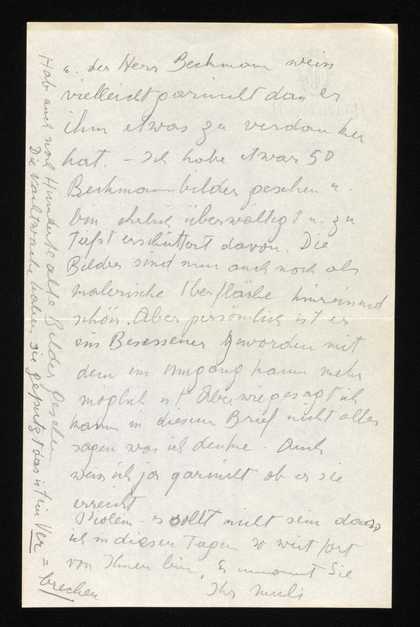 u. der Herr Beckmann weiss
vielleicht garnicht dass er
ihm etwas zu verdanken
hat. – Ich habe etwas 50
Beckmannbilder gesehen u.
bin ehrlich überwältigt u. zu
tiefst erschüttert davon. Die
Bilder sind nun auch noch als
malerische Oberfläche hinreissend
schön. Aber persönlich ist er
ein Besessener geworden mit
dem ein Umgang kaum mehr
möglich ist. Aber wie gesagt ich
kann in diesem Brief nicht alles
sagen was ich denke. Auch
weiss ich ja garnicht ob er sie
erreicht
– es sollte nicht sein dass
ich in diesen Tagen so weit fort
von Ihnen bin. Es umarmt Sie
Ihr
Hab auch noch Hunderte alte Bilder gesehen
Die haben sie geputzt das ist ein Ver=
brechen